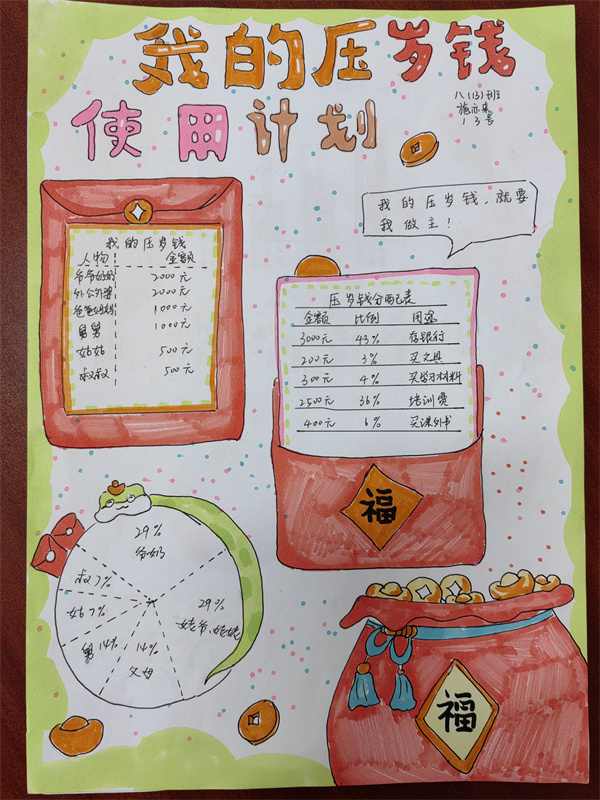 我的压岁钱
使用计划
八(13)班
施亦来
13号
我的压岁钱，就要
我做主！
我的压岁钱
人物 金额
爷爷奶奶 2000元
外公外婆 2000元
爸爸妈妈 1000元
舅舅 1000元
姑姑 500元
叔叔 500元
压岁钱分配表
金额 比例 用途
3000元 43% 存银行
200元 3% 买文具
300元 4% 买学习材料
2500元 36% 培训费
400元 6% 买课外书
福
29%
爷奶
叔7%
姑7%
舅14%
14%
父母
29%
姥爷、姥姥
福